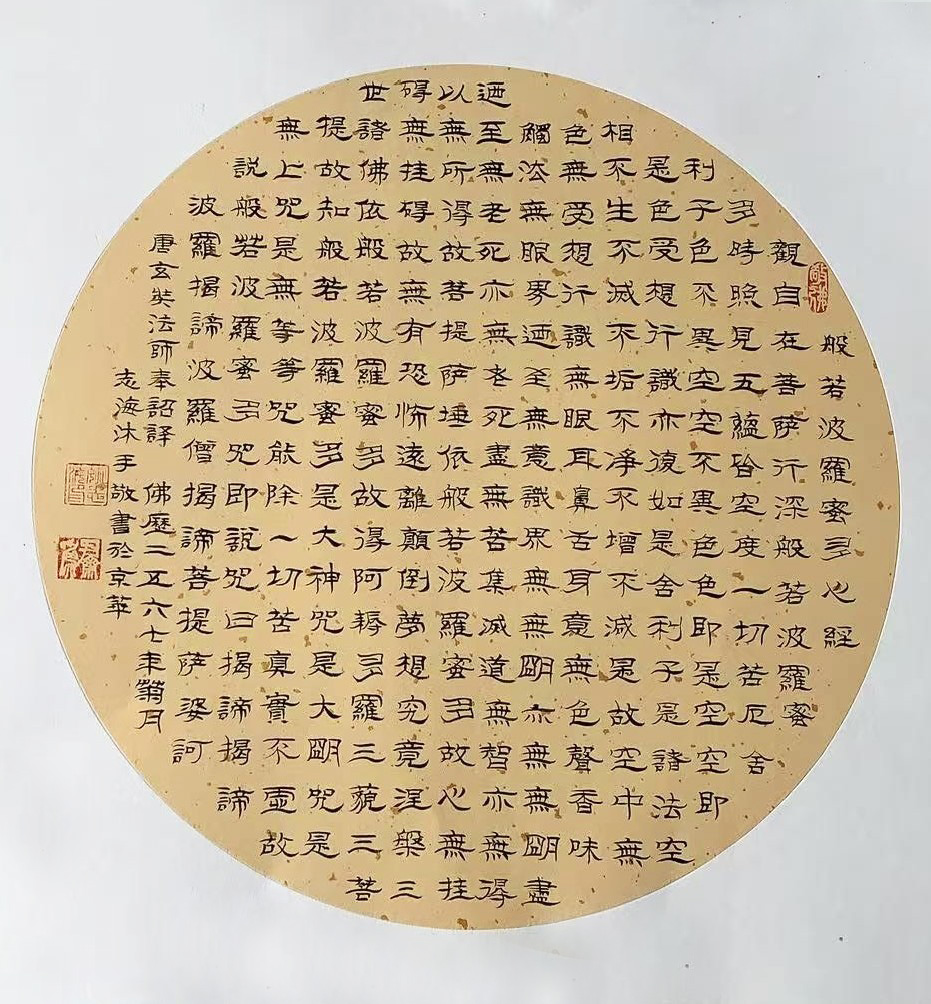 般若波羅蜜多心經
觀自在菩薩行深般若波羅蜜
多時照見五蘊皆空度一切苦厄舍
利子色不異空空不異色色即是空空即
是色受想行識亦復如是舍利子是諸法空
相不生不滅不垢不淨不增不減是故空中無
色無受想行識無眼耳鼻舌身意無色聲香味
觸法無眼界迺至無意識界無無明亦無無明盡
迺至無老死亦無老死盡無苦集滅道無智亦無得
以無所得故菩提薩埵依般若波羅蜜多故心無挂
碍無挂碍故無有恐怖遠離顛倒夢想究竟涅槃三
世諸佛依般若波羅蜜多故得阿耨多羅三藐三菩
提故知般若波羅蜜多是大神咒是大明咒是
無上咒是無等等咒能除一切苦真實不虛故
說般若波羅蜜多咒即說咒曰揭諦揭諦
波羅揭諦波羅僧揭諦菩提薩婆訶
唐玄奘法師奉詔譯 佛歷二五六七年菊月
志海沐手敬書於京華